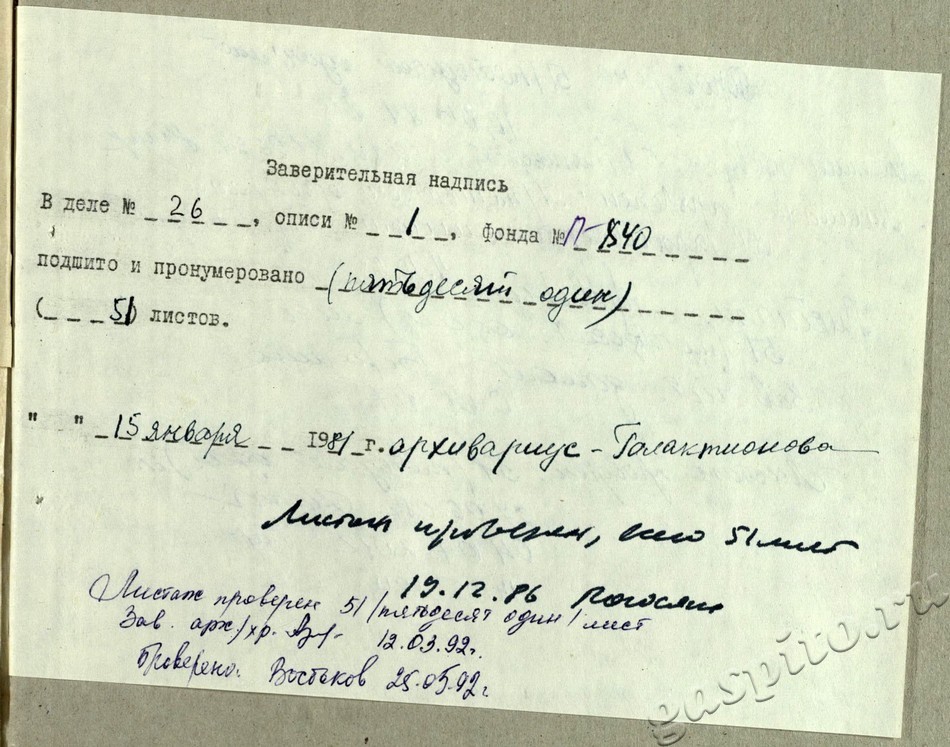 Заверительная надпись
В деле № _ 26 _ _ _, описи № _ _1_ _, фонда № П-840 _ _ _ _ _
подшито и пронумеровано _(пятьдесят один)_ _ _ _ _
(_ _ _ 51) листов.
" " _ 15 января _ _ 1981 г. архивариус - Галактионова
Листаж проверен, всего 51 лист
19.12.86 Погосян
Листаж проверен 51 /пятьдесят один/ лист
Зав. арх/хр. 12.03.92г.
Проверено: Востоков 25.05.92г.
gaspito.ru